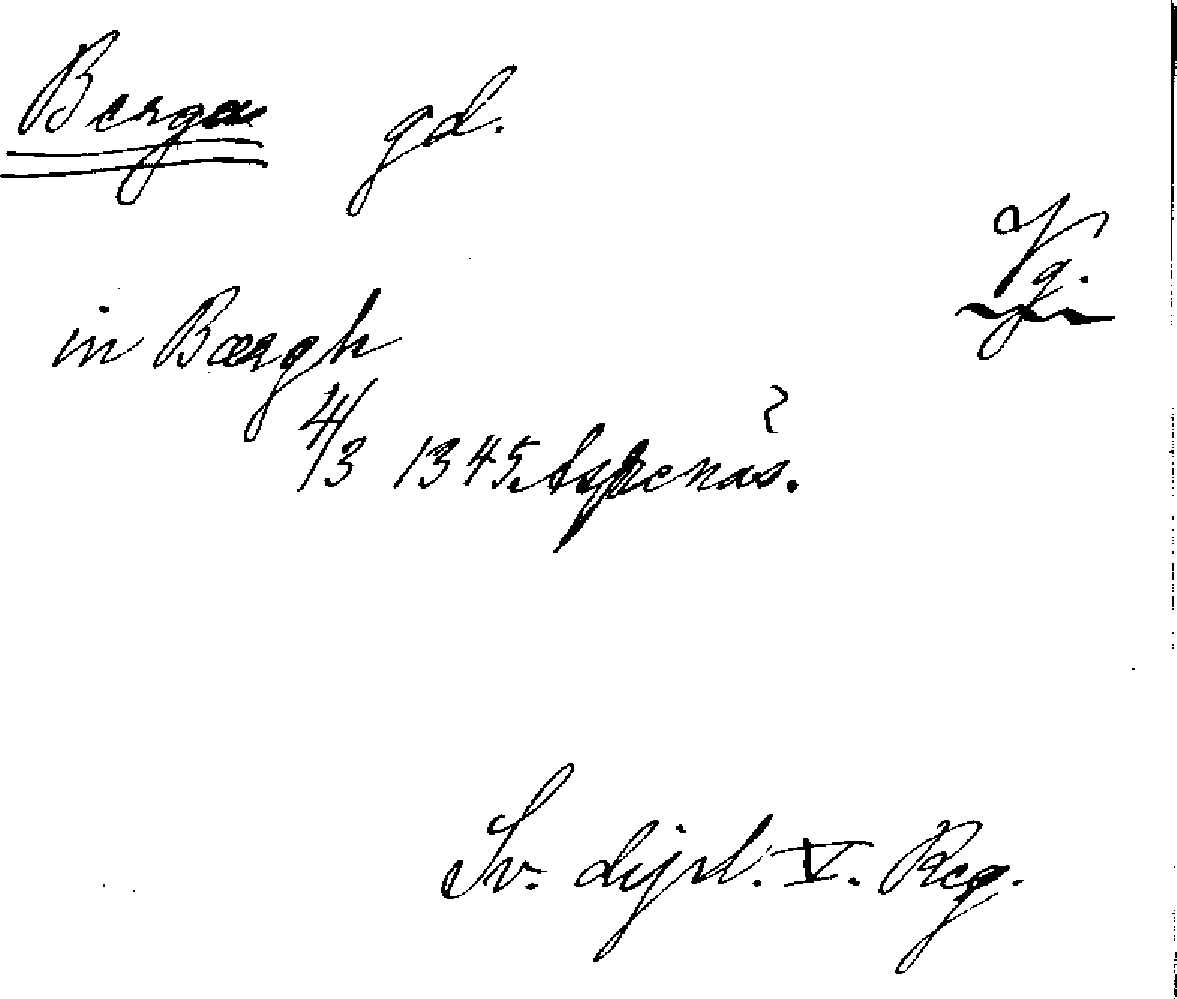 Berga gd.
Vg.
in Bærgh
4/3 1345. Aspenäs.
Sv. dipl. V. Reg.